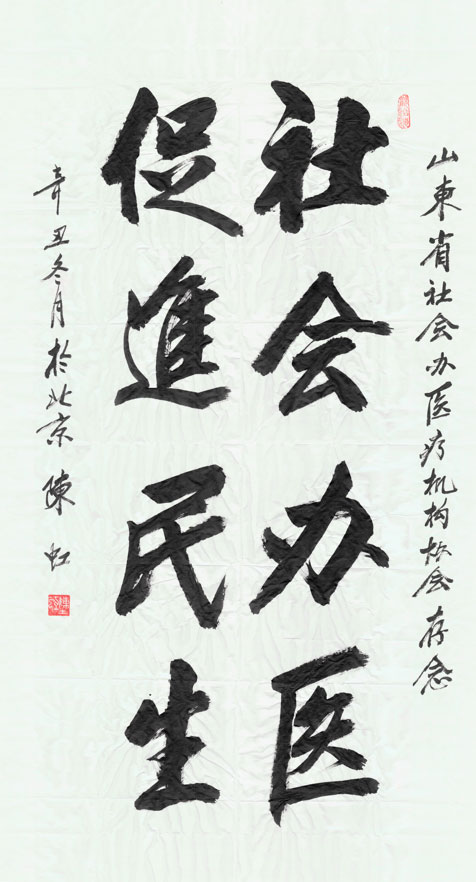 山東省社会办医疗机构协会存念
社会办医
促進民生
辛丑冬月於北京 陳虹